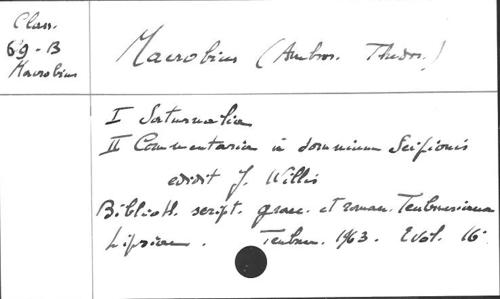 Class.
69-B
Macrobius
Macrobius (Ambros. Theodos.)
I Saturnalia
II Commentaria in somnium Scipionis
edidit J. Willis
Biblioth. script. graec. et roman. Teubneriana
Lipsiae. Teubner. 1963. 2 vol. 16°